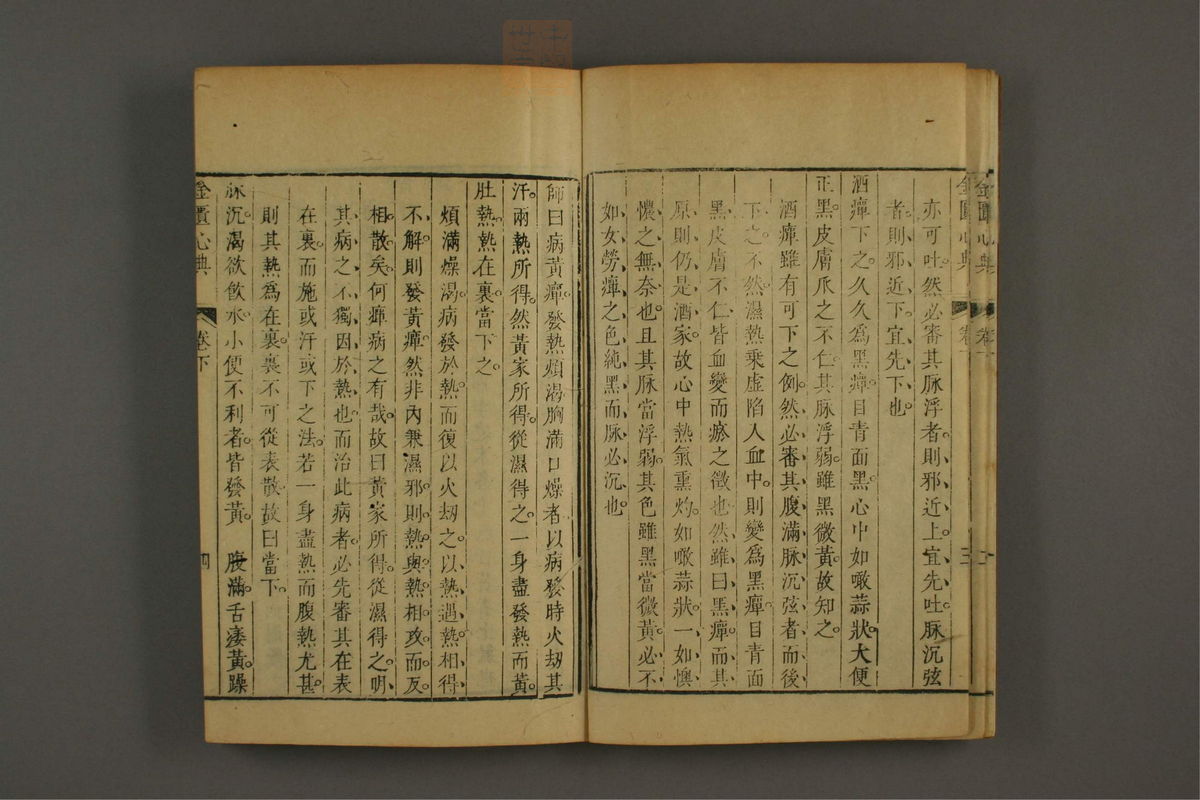 金匱心典 卷下 三
亦可吐然必審其脉浮者則邪近上宜先吐脉沉弦
者則邪近下宜先下也
酒癉下之久久爲黑癉目青面黑心中如噉蒜狀大便
正黑皮膚爪之不仁其脉浮弱雖黑微黃故知之
酒癉雖有可下之例然必審其腹滿脉沉弦者而後
下之不然濕熱乘虛陷入血中則變爲黑癉目青面
黑皮膚不仁皆血變而瘀之徵也然雖曰黑癉而其
原則仍是酒家故心中熱氣熏灼如噉蒜狀一如懊
憹之無奈也且其脉當浮弱其色雖黑當微黃必不
如女勞癉之色純黑而脉必沉也
師曰病黃癉發熱煩渴胸滿口燥者以病發時火刼其
汗兩熱所得然黃家所得從濕得之一身盡發熱而黃
肚熱熱在裏當下之
煩滿燥渴病發於熱而復以火刼之以熱遇熱相得
不解則發黃癉然非內兼濕邪則熱與熱相攻而反
相散矣何癉病之有哉故曰黃家所得從濕得之明
其病之不獨因於熱也而治此病者必先審其在表
在裏而施或汗或下之法若一身盡熱而腹熱尤甚
則其熱爲在裏裏不可從表散故曰當下
脉沉渴欲飲水小便不利者皆發黃 腹滿舌痿黃躁
金匱心典 卷下 四